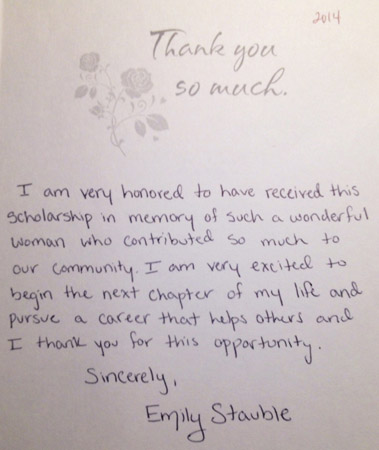 2014
Thank you
so much.
I am very honored to have received this
Scholarship in memory of such a wonderful
woman who contributed so much to
our community. I am very excited to
begin the next chapter of my life and
pursue a career that helps others and
I thank you for this opportunity.
Sincerely,
Emily Stauble